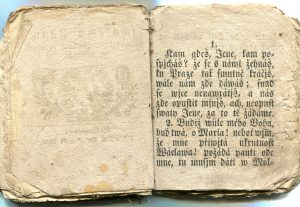 1.
Kam gdeš, Jene, kam po-
spjcháš? že se s námi žehnáš,
ku Praze tak smutně kráčjš,
wále nám zde dáwáš; snad
se wjce nenawrátjš, a nás
zde opustit mjnjš, ach, neopust
swatý Jene, za to tě žádáme.
2. Budiž wůle mého Boha,
buď twá, o Maria! neboť wjm,
že mne přiwjtá ukrutnost
Wáclawa! požádá pauti ode
mne, tu musjm dáti w Mol-